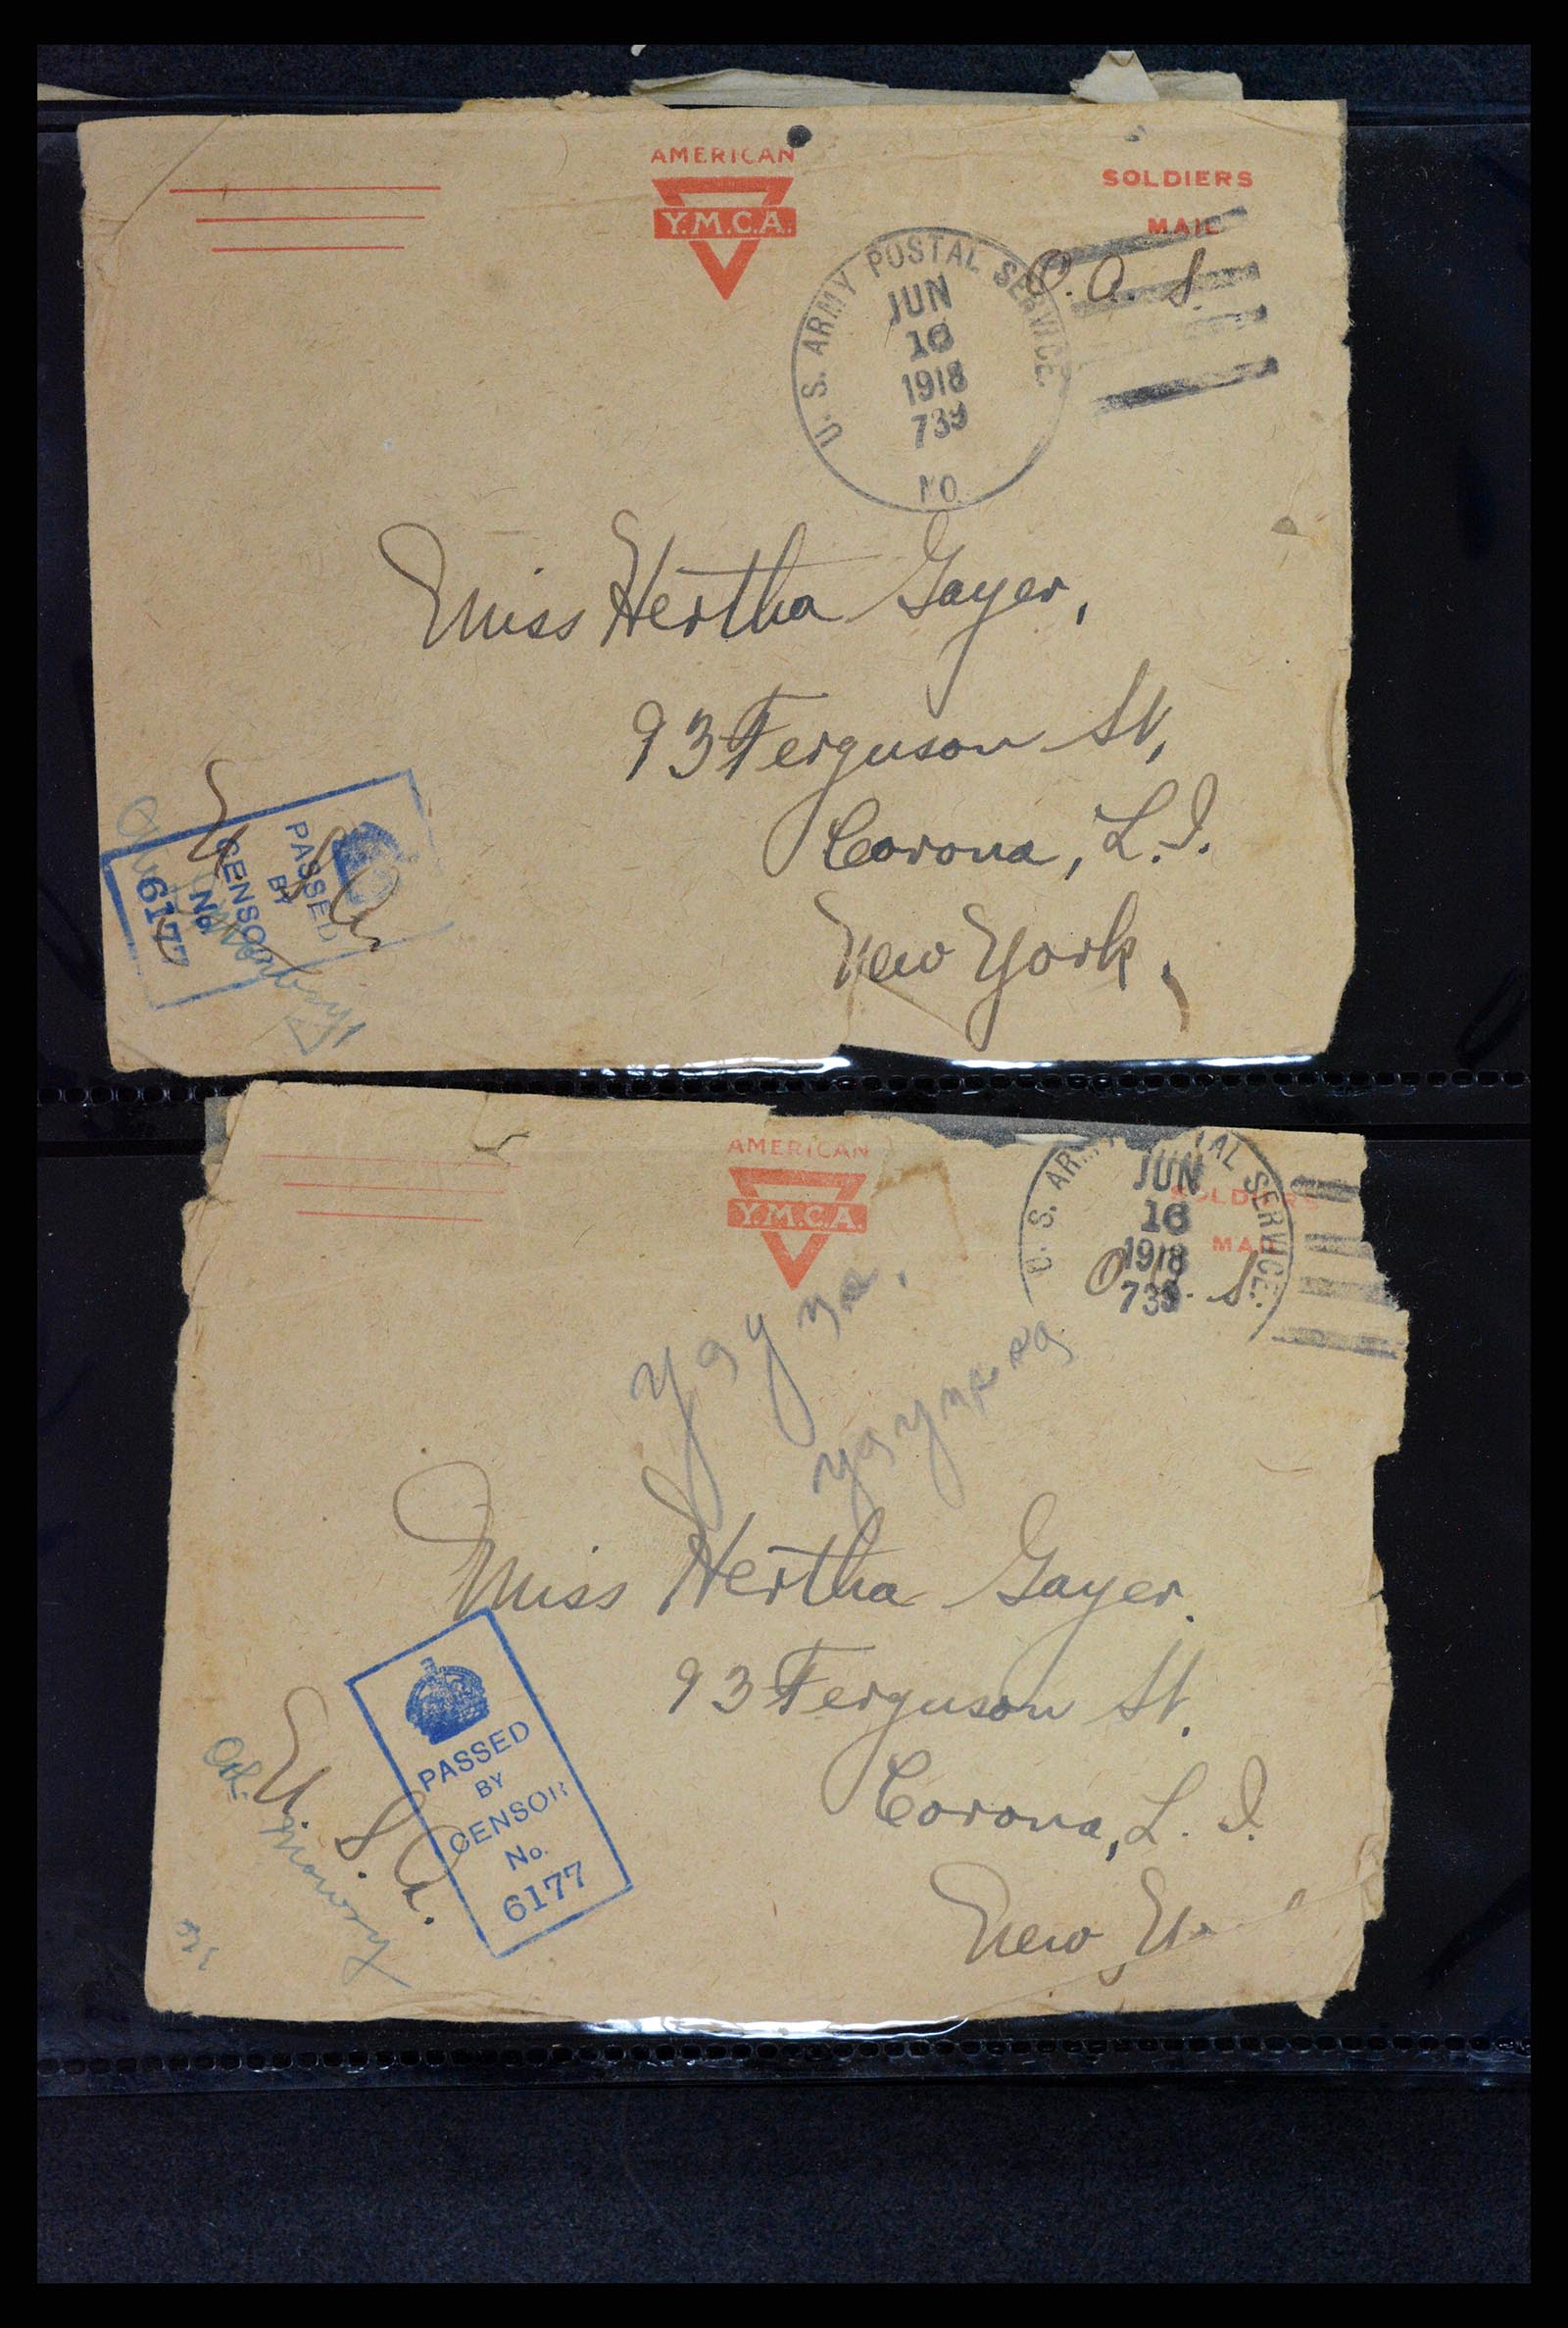 AMERICAN
Y.M.C.A.
SOLDIERS
MAIL
O. A. S.
U. S. ARMY POSTAL SERVICE.
JUN
16
1918
739
NO.
Miss Hertha Gayer,
93 Ferguson St,
Corona, L.I.
New York
U. S. A.
PASSED
BY
CENSOR
No.
6177
AMERICAN
Y.M.C.A.
SOLDIERS
MAIL
O. A. S.
U. S. ARMY POSTAL SERVICE.
JUN
16
1918
739
Miss Hertha Gayer.
93 Ferguson St.
Corona, L. I.
New
U. S. A.
PASSED
BY
CENSOR
No.
6177